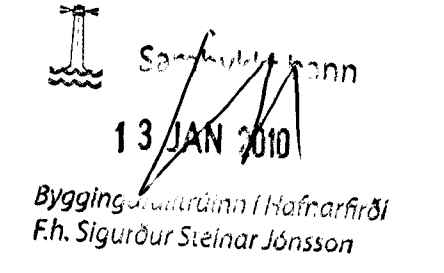 Samþykkt þann
13 JAN 2010
Byggingafulltrúinn í Hafnarfirði
F.h. Sigurður Steinar Jónsson